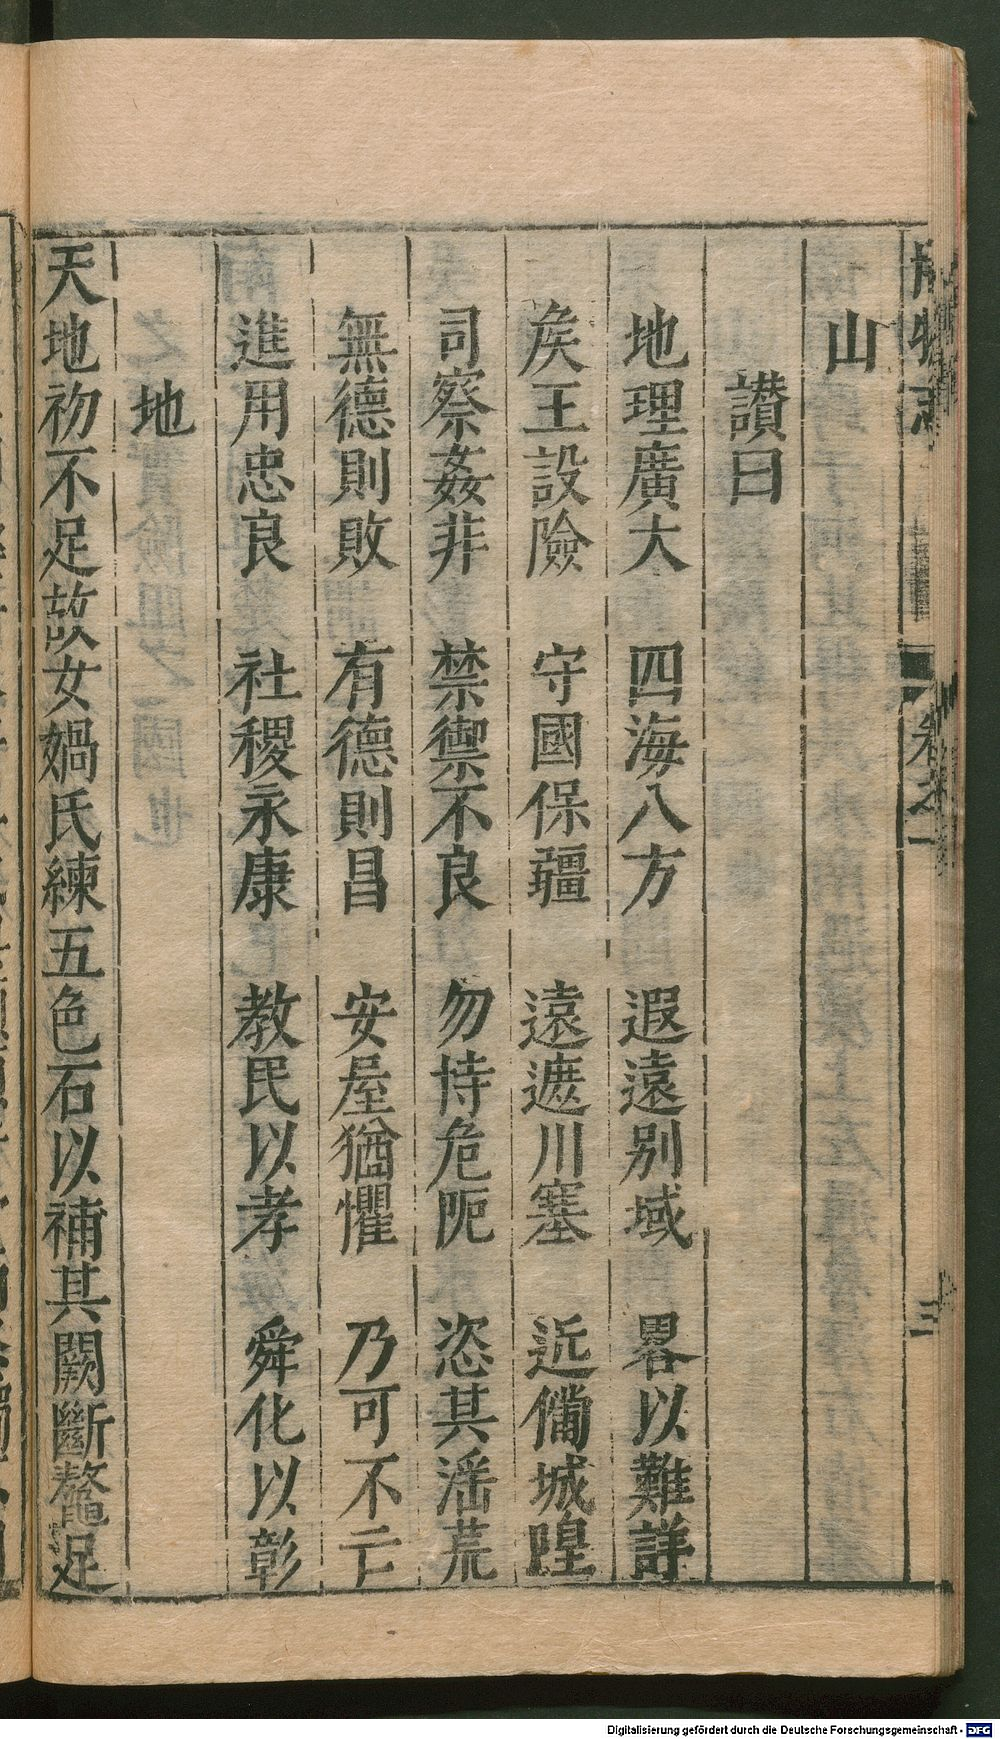 山
讃曰
地理廣大 四海八方 遐遠别域 畧以難詳
矦王設險 守國保疆 遠遮川塞 近俻城隍
司察姦非 禁禦不良 勿恃危阨 恣其滛荒
無德則敗 有德則昌 安屋猶懼 乃可不亡
進用忠良 社稷永康 教民以孝 舜化以彰
地
天地初不足故女媧氏練五色石以補其闕斷鼇足
物志 卷之一 三
Digitalisierung gefördert durch die Deutsche Forschungsgemeinschaft - DFG